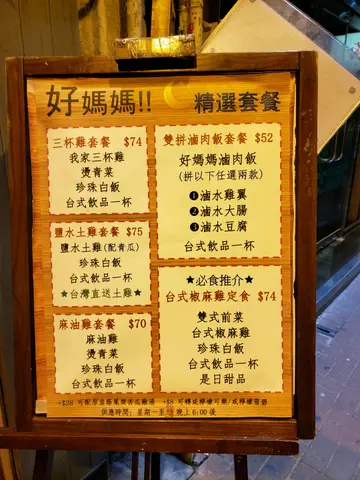 好媽媽!! 精選套餐
三杯雞套餐 $74
我家三杯雞
燙青菜
珍珠白飯
台式飲品一杯
鹽水土雞套餐 $75
鹽水土雞(配青瓜)
珍珠白飯
台式飲品一杯
★台灣直送土雞★
麻油雞套餐 $70
麻油雞
燙青菜
珍珠白飯
台式飲品一杯
雙拼滷肉飯套餐 $52
好媽媽滷肉飯
(拼以下任選兩款)
❶滷水雞翼
❷滷水大腸
❸滷水豆腐
台式飲品一杯
★必食推介★
台式椒麻雞定食 $74
雙式前菜
台式椒麻雞
珍珠白飯
台式飲品一杯
是日甜品
+$28 可配原盅 鳳梨苦瓜雞湯 +$8 可轉咸檸檬可樂/咸檸檬雪碧
供應時間: 星期一至 晚上6:00後